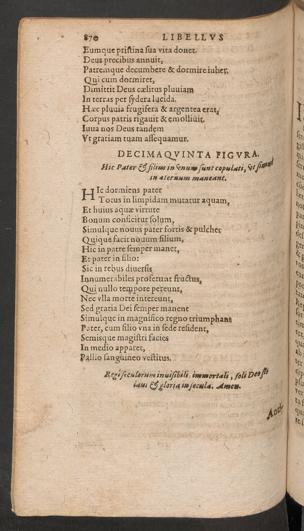 870 LIBELLVS
Eumque pristina sua vita donet.
Deus precibus annuit,
Patremque decumbere & dormire iubet.
Qui cum dormiret,
Dimittit Deus cælitus pluuiam
In terras per sydera lucida.
Hæc pluuia frugifera & argentea erat,
Corpus patris rigauit & emolliuit.
Iuua nos Deus tandem
Vt gratiam tuam assequamur.
DECIMAQVINTA FIGVRA.
Hic Pater & filius in vnum sunt copulati, vt simul
in æternum maneant.
HIc dormiens pater
Totus in limpidam mutatur aquam,
Et huius aquæ virtute
Bonum conficitur solum,
Simulque nouus pater fortis & pulcher
Quique facit nouum filium,
Hic in patre semper manet,
Et pater in filio:
Sic in rebus diuersis
Innumerabiles proferunt fructus,
Qui nullo tempore pereunt,
Nec vlla morte intereunt,
Sed gratia Dei semper manent
Simulque in magnifico regno triumphant
Pater, cum filio vna in sede resident,
Semisque magistri facies
In medio apparet,
Pallio sanguineo vestitus.
Regi seculorum inuisibili, immortali, soli Deo sit
laus & gloria in secula. Amen.